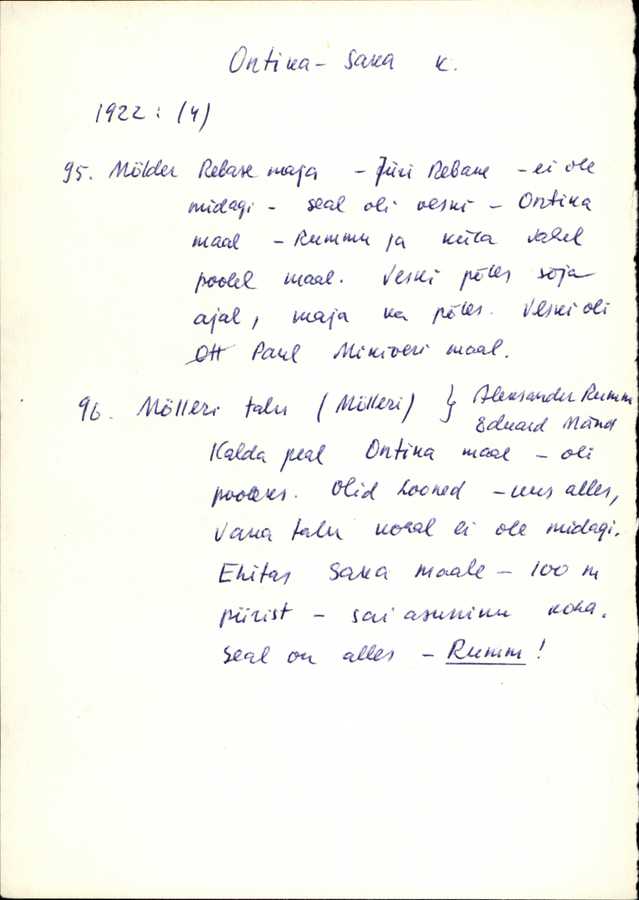 Ontika - Saka k.
1922: (4)
95. Mölder Rebase maja - Jüri Rebane - ei ole
midagi - seal oli veski - Ontika
maal - Rummu ja küla vahel
poolel maal. Veski põles sõja
ajal, maja ka põles. Veski oli
Ott Paul Mikiveri maal.
96. Mölleri talu (Mölleri) } Aleksander Rumm
Eduard Mänd
Kalda peal Ontika maal - oli
pooleks. Olid hooned - uus alles,
vana talu kohal ei ole midagi.
Ehitas Saka maale - 100 m
piirist - sai asuniku koha.
Seal on alles - Rumm!